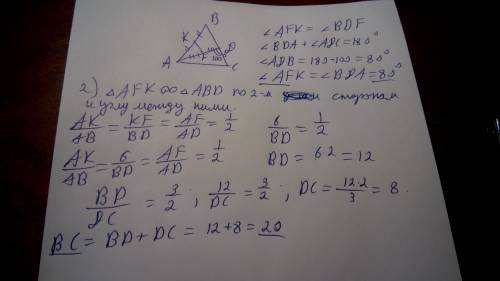 B
K
D
A F 100° C
∠AFK = ∠BDF
∠BDA + ∠ADC = 180°
∠ADB = 180 - 100 = 80°
∠AFK = ∠BDA = 80°
2) △AFK ∞ △ABD по 2-м сторонам
и углу между ними.
AK/AB = KF/BD = AF/AD = 1/2
6/BD = 1/2
AK/AB = 6/BD = AF/AD = 1/2
BD = 6·2 = 12
BD/DC = 3/2 ; 12/DC = 3/2 ; DC = 12·2/3 = 8.
BC = BD + DC = 12 + 8 = 20